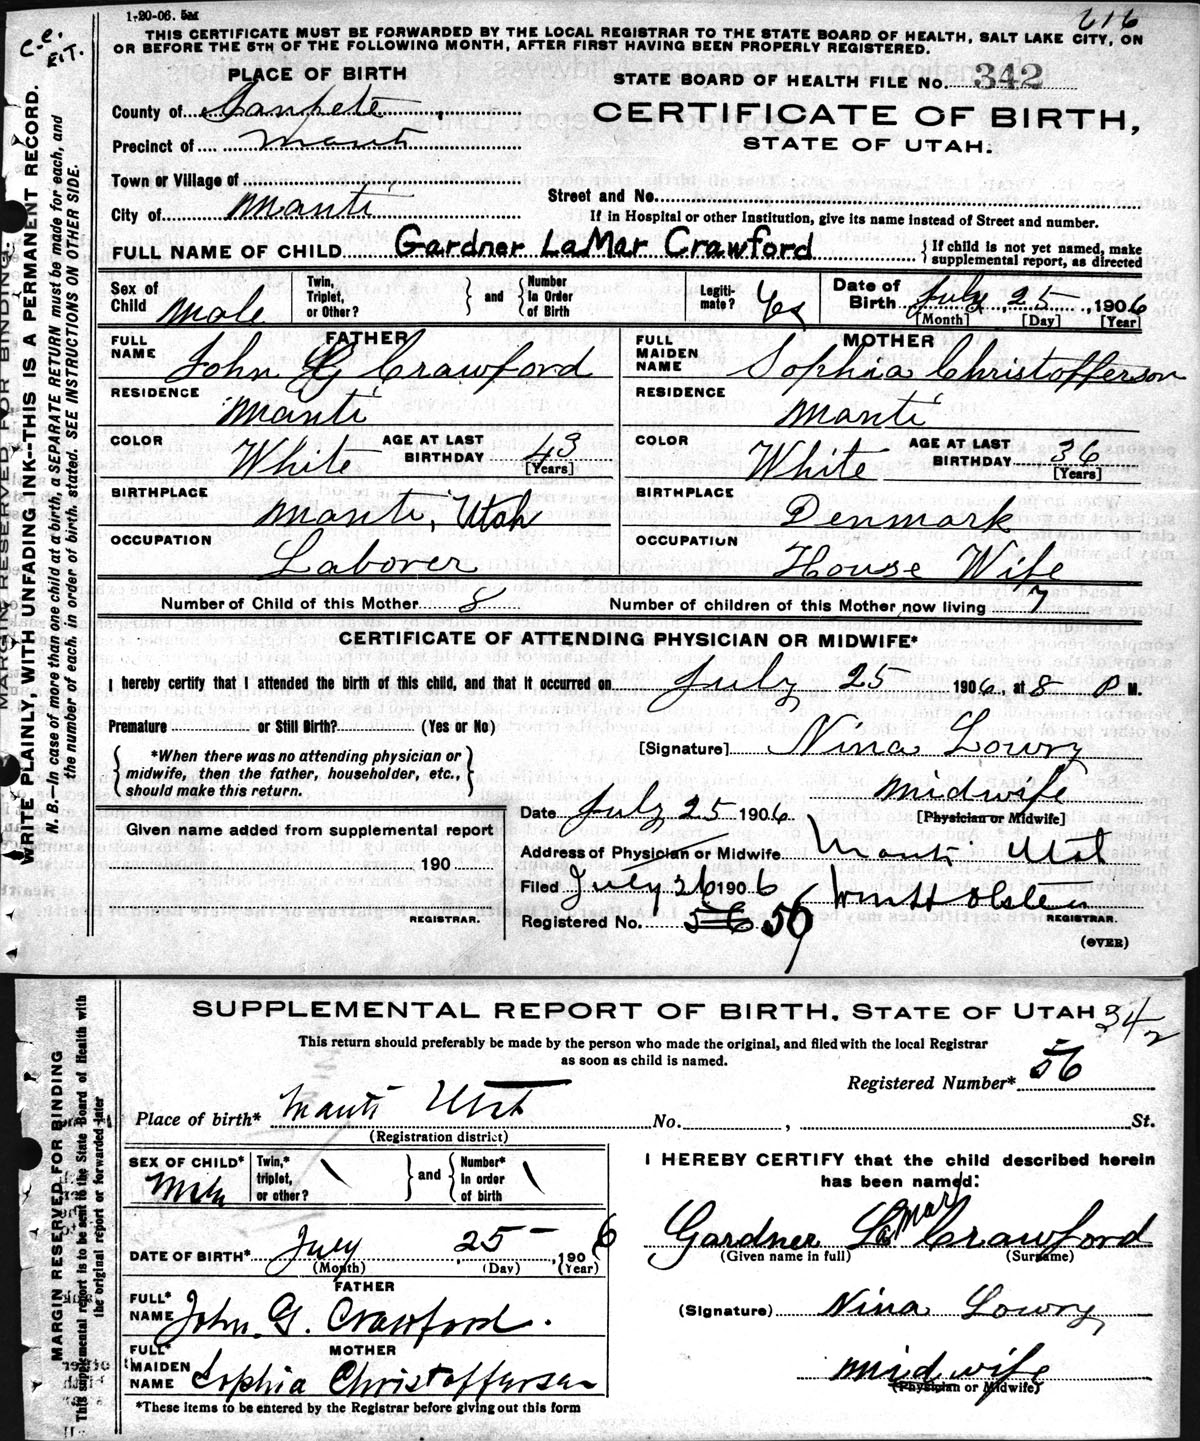 1-20-06. 5M
616
C.C.
E.T.
THIS CERTIFICATE MUST BE FORWARDED BY THE LOCAL REGISTRAR TO THE STATE BOARD OF HEALTH, SALT LAKE CITY, ON
OR BEFORE THE 5TH OF THE FOLLOWING MONTH, AFTER FIRST HAVING BEEN PROPERLY REGISTERED.
MARGIN RESERVED FOR BINDING
WRITE PLAINLY, WITH UNFADING INK--THIS IS A PERMANENT RECORD.
N. B.—In case of more than one child at a birth, a SEPARATE RETURN must be made for each, and
the number of each, in order of birth, stated. SEE INSTRUCTIONS ON OTHER SIDE.
PLACE OF BIRTH
STATE BOARD OF HEALTH FILE No. 342
County of Sanpete
CERTIFICATE OF BIRTH,
Precinct of Manti
STATE OF UTAH.
Town or Village of
Street and No.
City of Manti
If in Hospital or other Institution, give its name instead of Street and number.
FULL NAME OF CHILD Gardner LaMar Crawford { If child is not yet named, make
supplemental report, as directed
Sex of Child Male Twin, Triplet, or Other? } and { Number in Order of Birth Legiti-mate? Yes Date of Birth July 25, 1906
[Month] [Day] [Year]
FATHER MOTHER
FULL NAME John G Crawford FULL MAIDEN NAME Sophia Christofferson
RESIDENCE Manti RESIDENCE Manti
COLOR White AGE AT LAST BIRTHDAY 43 [Years] COLOR White AGE AT LAST BIRTHDAY 36 [Years]
BIRTHPLACE Manti, Utah BIRTHPLACE Denmark
OCCUPATION Laborer OCCUPATION House Wife
Number of Child of this Mother 8 Number of children of this Mother now living 7
CERTIFICATE OF ATTENDING PHYSICIAN OR MIDWIFE*
I hereby certify that I attended the birth of this child, and that it occurred on July 25 1906, at 8 P M.
Premature or Still Birth? (Yes or No)
[Signature] Nina Lowry
{ *When there was no attending physician or
midwife, then the father, householder, etc.,
should make this return. }
Midwife
Date July 25 1906 [Physician or Midwife]
Given name added from supplemental report
Address of Physician or Midwife Manti Utah
190
Filed July 26 1906 Wm H Olsten
REGISTRAR. REGISTRAR.
Registered No. 56 56
(OVER)
MARGIN RESERVED FOR BINDING
This supplemental report is to be sent to the State Board of Health with
the original report or forwarded later
SUPPLEMENTAL REPORT OF BIRTH, STATE OF UTAH 342
This return should preferably be made by the person who made the original, and filed with the local Registrar
as soon as child is named.
Registered Number* 56
Place of birth* Manti Utah No. , St.
(Registration district)
SEX OF CHILD* Male Twin,* triplet, or other? \ } and { Number* in order of birth \
I HEREBY CERTIFY that the child described herein
has been named:
Gardner LaMar Crawford
(Given name in full) (Surname)
DATE OF BIRTH* July 25 — 1906
(Month) (Day) (Year)
FATHER
FULL* NAME John G. Crawford.
(Signature) Nina Lowry
MOTHER
FULL* MAIDEN NAME Sophia Christoffersen
Midwife
(Physician or Midwife)
*These items to be entered by the Registrar before giving out this form